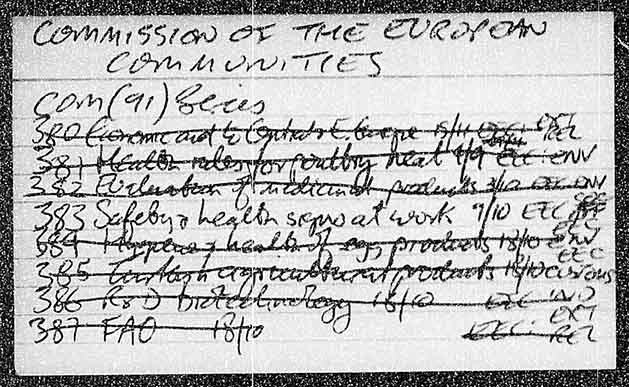 COMMISSION OF THE EUROPEAN
COMMUNITIES
COM(91) Series
380 Economic aid to Central & E. Europe 15/11 EEC EXT REL
381 Health rules for poultry meat 4/9 EEC ENV
382 Evaluation of medicinal products 3/12 EEC ENV
383 Safety & health signs at work 9/10 EEC
384 Hygiene & health of egg products 18/10 ENV
385 Turkish agricultural products 18/10 EEC CUSTOMS
386 R & D Biotechnology 18/10 EEC IND
387 FAO 18/10 EEC EXT REL